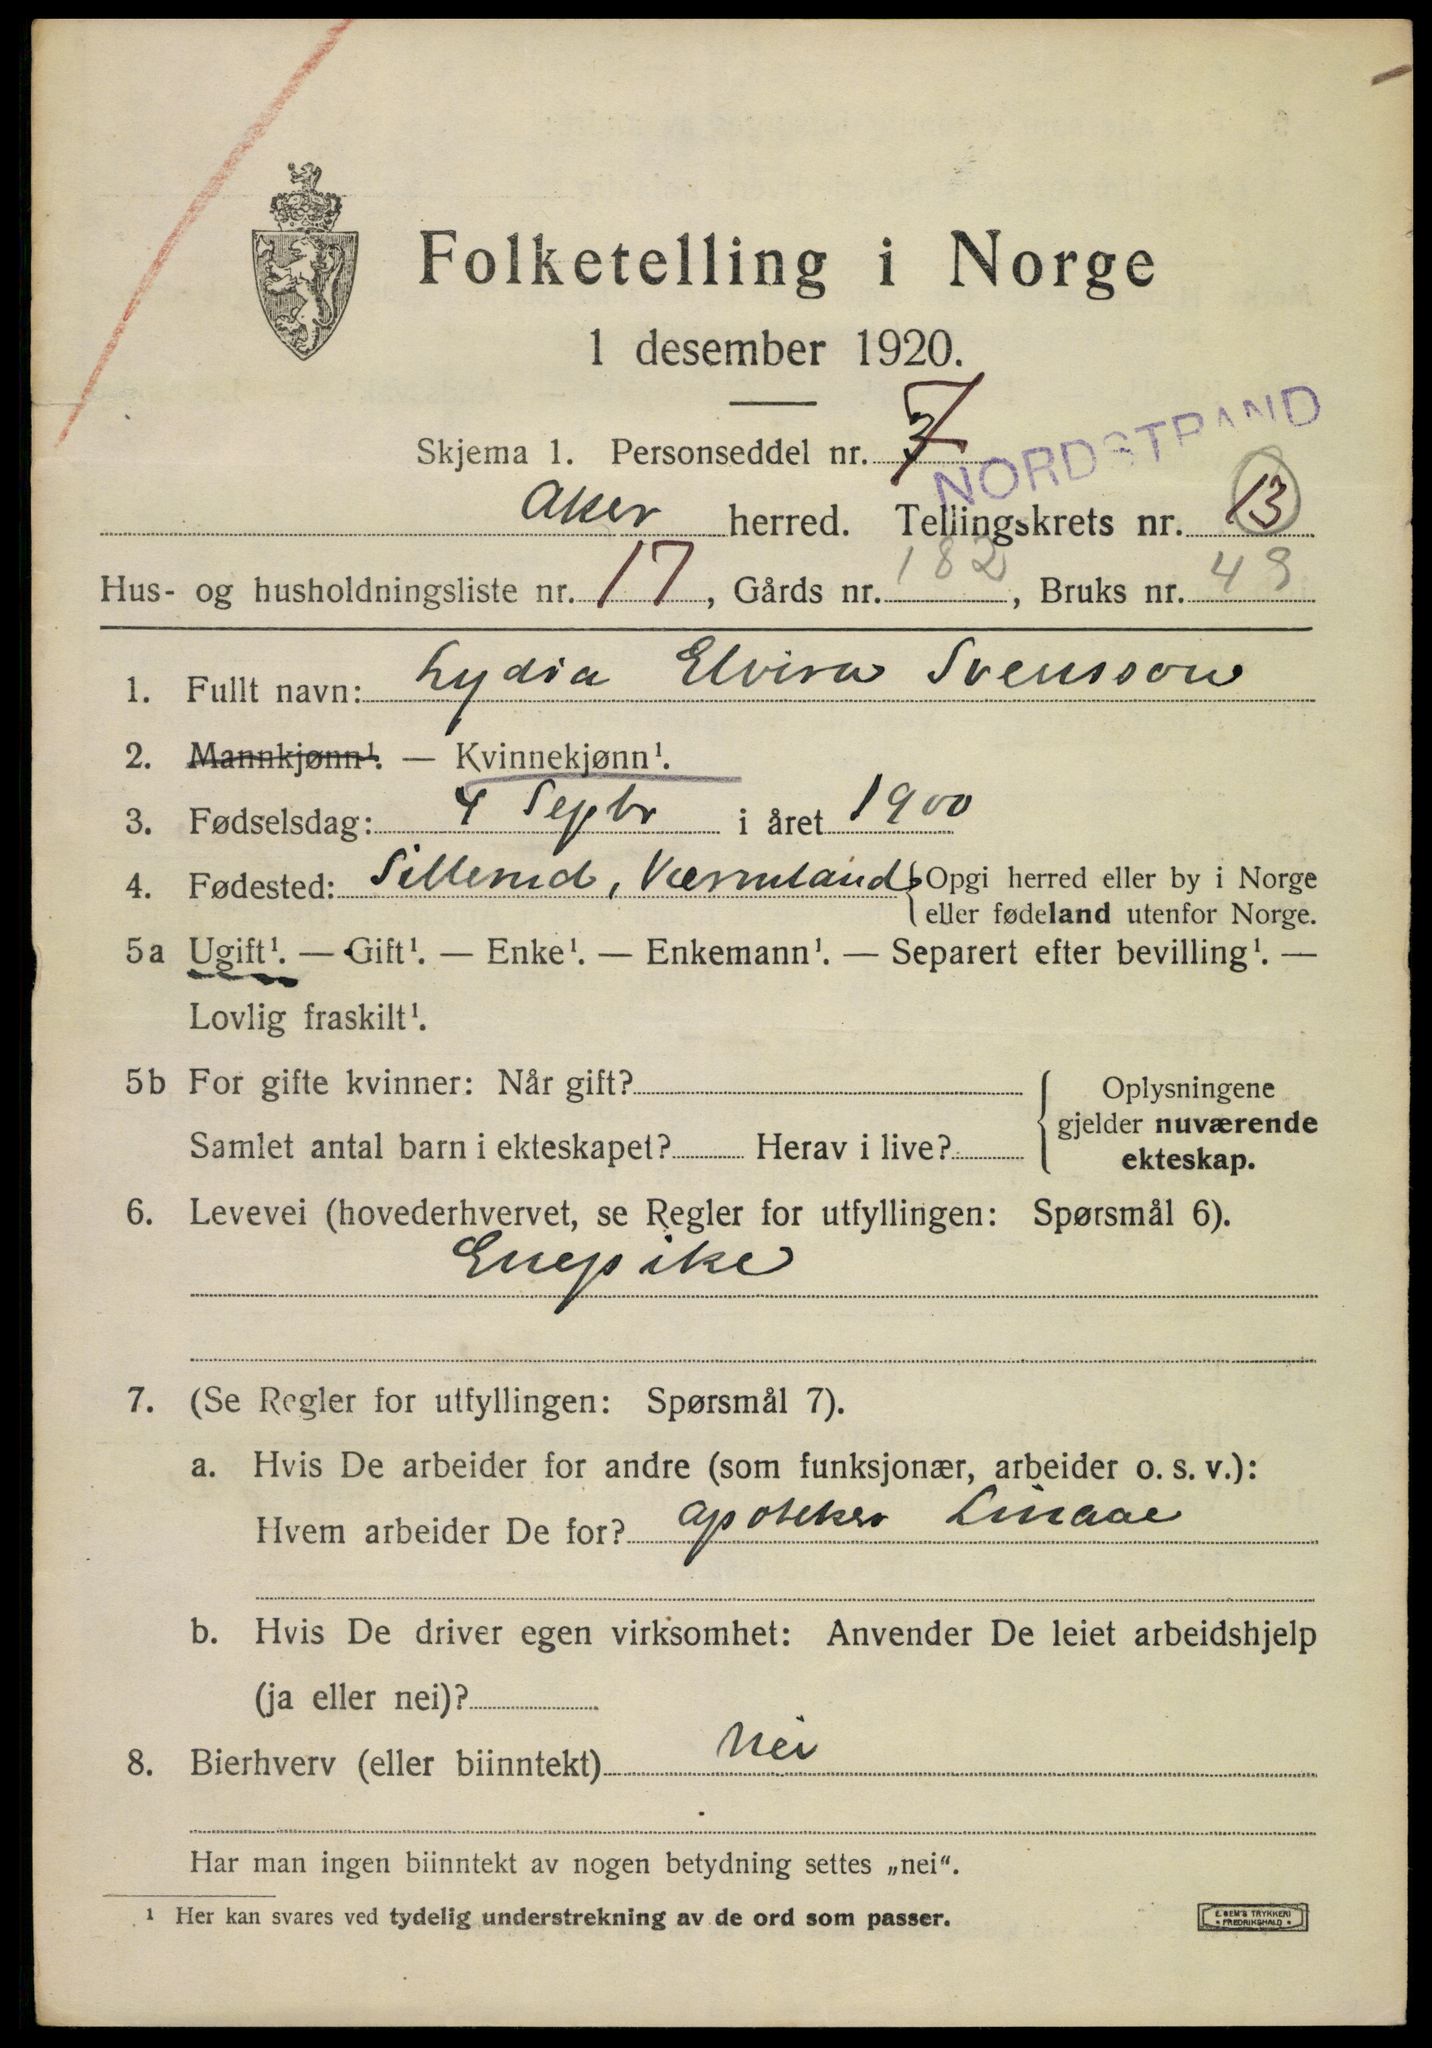 Folketelling i Norge
1 desember 1920.
Skjema 1. Personseddel nr. 7
NORDSTRAND
Aker herred. Tellingskrets nr. 13
Hus- og husholdningsliste nr. 17, Gårds nr. 182, Bruks nr. 49
1. Fullt navn: Lydia Elvira Svensson
2. Mannkjønn¹. — Kvinnekjønn¹.
3. Fødselsdag: 4 Septbr i året 1900
4. Fødested: Sillerud, Værmland { Opgi herred eller by i Norge
eller fødeland utenfor Norge.
5a Ugift¹. — Gift¹. — Enke¹. — Enkemann¹. — Separert efter bevilling¹. —
Lovlig fraskilt¹.
5b For gifte kvinner: Når gift?
Samlet antal barn i ekteskapet? Herav i live?
Oplysningene
gjelder nuværende
ekteskap.
6. Levevei (hovederhvervet, se Regler for utfyllingen: Spørsmål 6).
Enepike
7. (Se Regler for utfyllingen: Spørsmål 7).
a. Hvis De arbeider for andre (som funksjonær, arbeider o. s. v.):
Hvem arbeider De for? Apoteker Linaae
b. Hvis De driver egen virksomhet: Anvender De leiet arbeidshjelp
(ja eller nei)?
8. Bierhverv (eller biinntekt) Nei
Har man ingen biinntekt av nogen betydning settes „nei“.
¹ Her kan svares ved tydelig understrekning av de ord som passer.
E. SEM'S TRYKKERI
• FREDRIKSHALD •